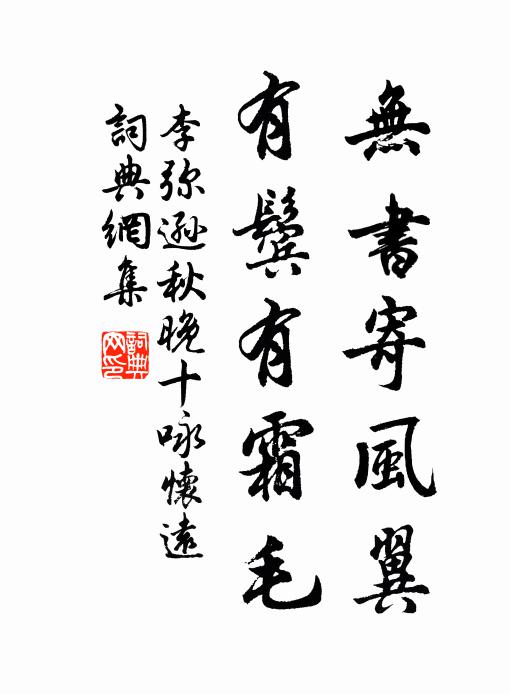 無書寄風翼
有鬢有霜毛
李弥遜秋晚十咏懷遠
詞典網集
詞典
网印